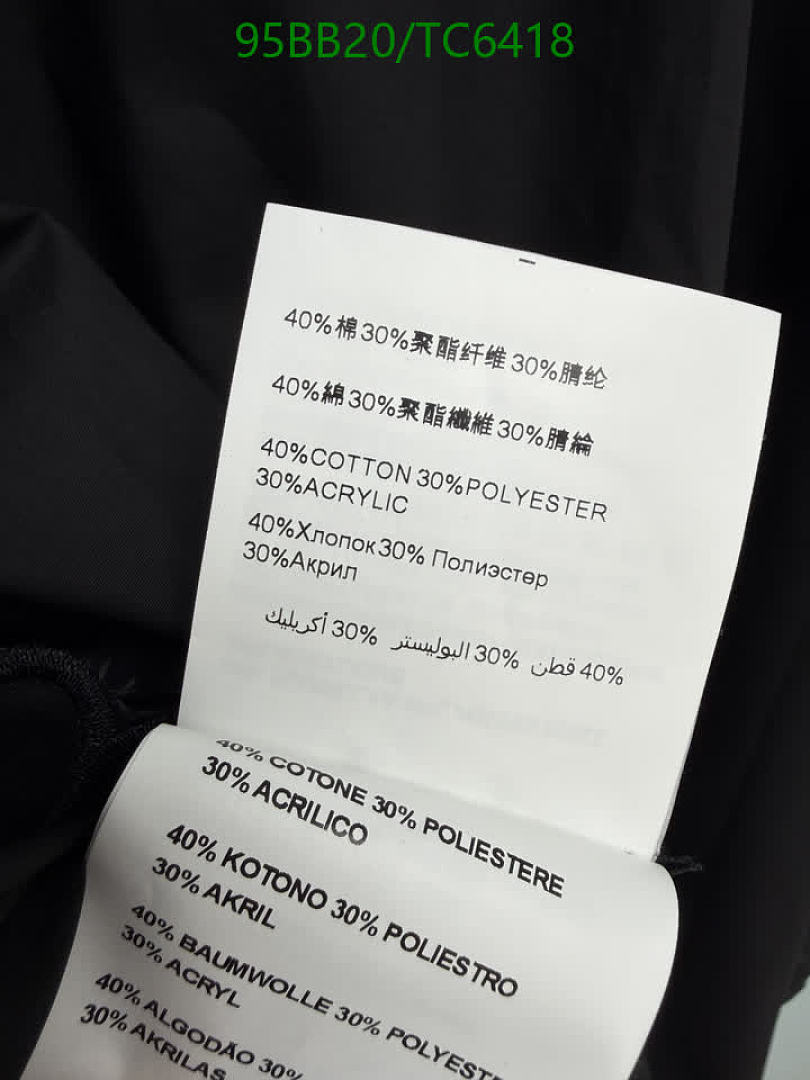 95BB20/TC6418
40%棉30%聚酯纤维30%腈纶
40%綿30%聚酯纖維30%腈綸
40%COTTON 30%POLYESTER
30%ACRYLIC
40%Хлопок30% Полиэстер
30%Акрил
40% قطن 30% البوليستر 30% أكريليك
40% COTONE 30% POLIESTERE
30% ACRILICO
40% KOTONO 30% POLIESTRO
30% AKRIL
40% BAUMWOLLE 30% POLYEST
30% ACRYL
40% ALGODÃO 30%
30% AKRILAS